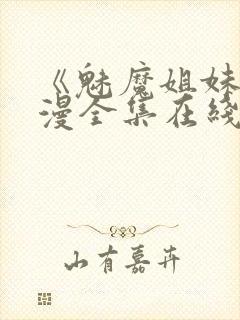 《魅魔姐妹
漫全集在线
山有嘉卉